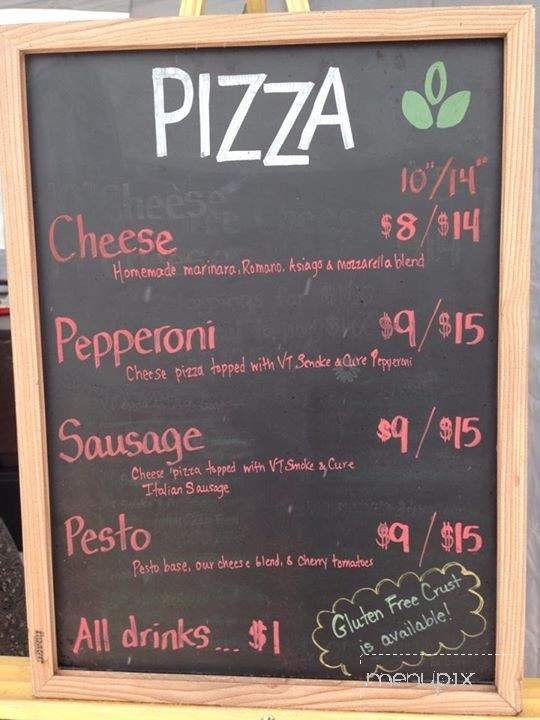 PIZZA
10"/14"
Cheese $8/$14
Homemade marinara, Romano, Asiago & mozzarella blend
Pepperoni $9/$15
Cheese pizza topped with VT Smoke & Cure Pepperoni
Sausage $9/$15
Cheese pizza topped with VT Smoke & Cure
Italian Sausage
Pesto $9/$15
Pesto base, our cheese blend, & cherry tomatoes
Gluten Free Crust
is available!
All drinks... $1
menupix